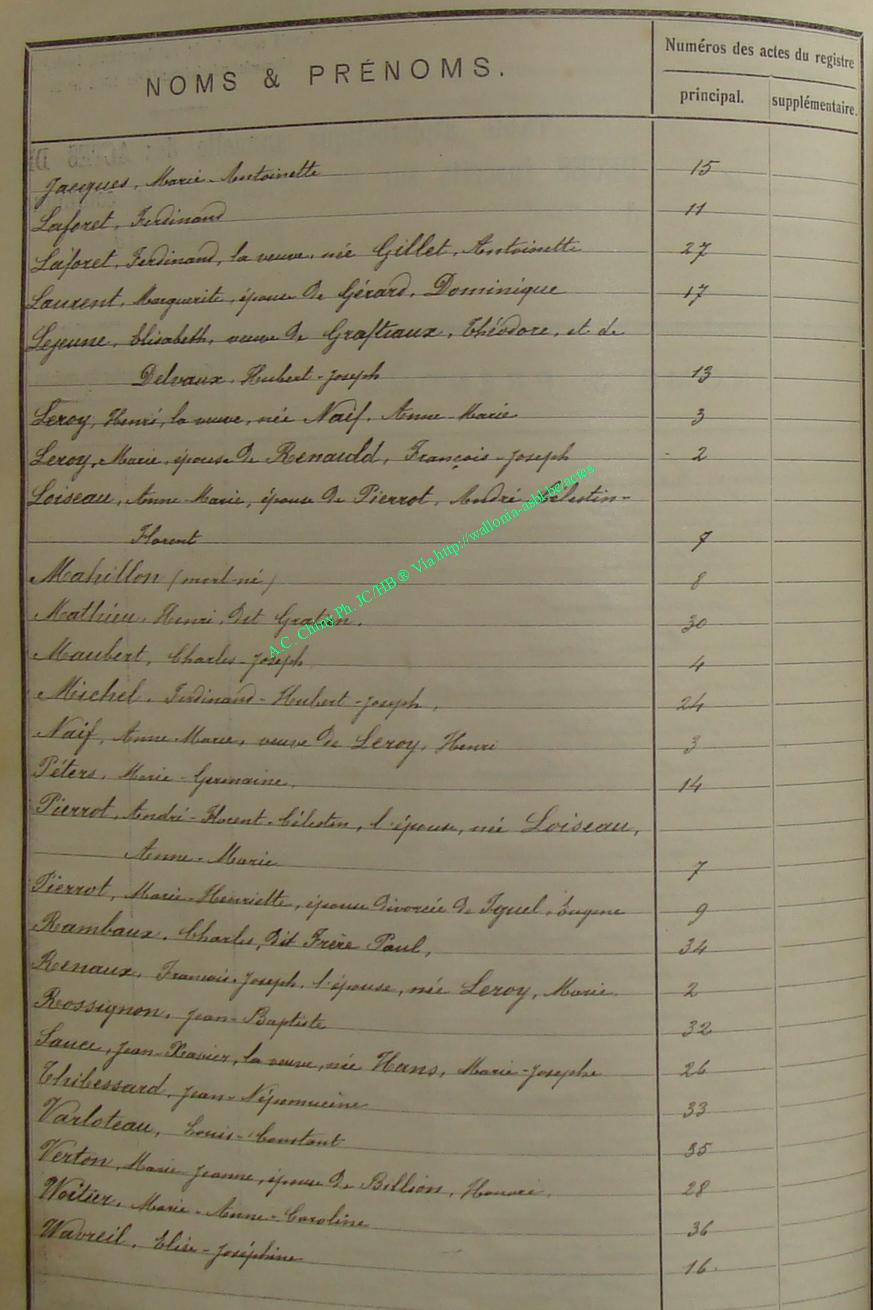 NOMS & PRÉNOMS.
Numéros des actes du registre
principal. supplémentaire.
Jacques, Marie-Antoinette 15
Laforet, Ferdinand 11
Laforet, Ferdinand, la veuve, née Gillet, Antoinette 27
Laurent, Marguerite, épouse de Gérard, Dominique 17
Lejeune, Elisabeth, veuve de Graftiaux, Théodore, et de
Delvaux, Hubert-Joseph 13
Leroy, Henri, la veuve, née Naif, Anne-Marie 3
Leroy, Marie, épouse de Renauld, François-Joseph 2
Loiseau, Anne-Marie, épouse de Pierrot, André-Célestin-
Florent 7
Mahillon (mort-né) 8
Mathieu, Henri, dit Graton, 30
Maubert, Charles-Joseph 4
Michel, Ferdinand-Hubert-Joseph, 24
Naif, Anne-Marie, veuve de Leroy, Henri 3
Péters, Marie-Germaine, 14
Pierrot, André-Florent-Célestin, l'épouse, née Loiseau,
Anne-Marie 7
Pierrot, Marie-Henriette, épouse divorcée de Iguel, Eugene 9
Rambaux, Charles, dit Frère Paul, 34
Renaux, François-Joseph, l'épouse, née Leroy, Marie 2
Rossignon, Jean-Baptiste 32
Sauce, Jean-Xavier, la veuve, née Hans, Marie-Josephe 26
Thibessard, Jean-Népomucène 33
Varloteau, Louis-Constant 35
Verton, Marie-Jeanne, épouse de Billion, Honoré, 28
Woitier, Marie-Anne-Caroline 36
Wavreil, Elise-Joséphine 16.
A.C. Chiny Ph. JC/HB ® Via http://wallonia-asbl.be/actes